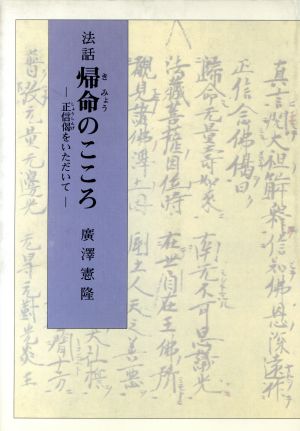 法話 帰命のこころ
き みょう
―正信偈をいただいて―
しょうしんげ
廣澤憲隆
真言 大祖解釈信佛恩深遠作
正信念佛偈曰
歸命无量寿如来 南无不可思議光
法藏菩薩因位時 在世自在王佛所
覩見諸佛浄土因 国土人天之善悪
普放无量无邊光 无导无對光炎王